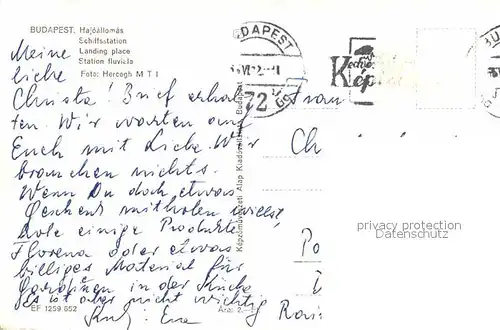 BUDAPEST. Hajóállomás
Schiffsstation
Landing place
Station fluviale
Foto: Hercegh M T I
Meine
liebe
Christa! Brief erhal-
ten. Wir warten auf
Euch mit Liebe. Wir
brauchen nichts.
Wenn Du doch etwas
Geschenk mitholen willst,
hole einige Produkte
Florena oder etwas
billiges Material für
Gardinen in der Küche
Es ist aber nicht wichtig
EF 1259 652
Ára: 2.-
Képzőművészeti Alap Kiadóvállalata, Budapest
BUDAPEST
72
Kép
Frau
Ch
privacy protection
Datenschutz
Po